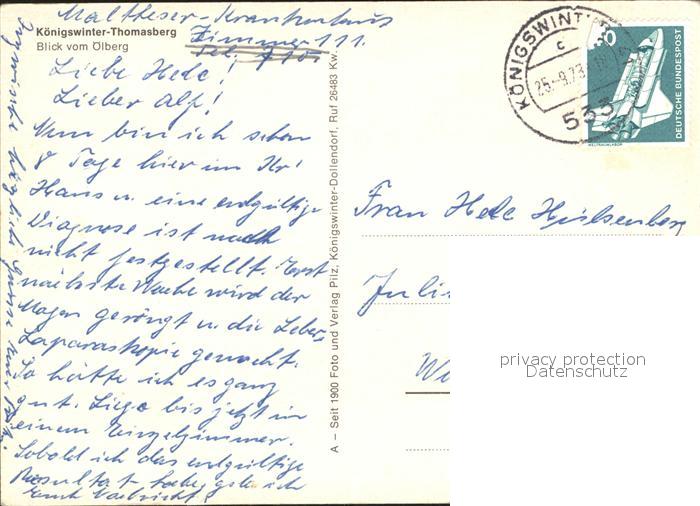 Malteser-Krankenhaus
Königswinter-Thomasberg
Blick vom Ölberg
Zimmer 111.
Tel.
Liebe Hede!
Lieber Alf!
Nun bin ich schon
8 Tage hier im Kr.
Haus u. eine endgültige
Diagnose ist noch
nicht festgestellt. Erst
nächste Woche wird der
Magen geröngt u. die Leber
Laparaskopie gemacht.
So hätte ich es ganz
gut. Liege bis jetzt in
einem Einzelzimmer.
Sobald ich das endgültige
Resultat habe, geb ich
Euch Nachricht.
A – Seit 1900 Foto und Verlag Pilz, Königswinter-Dollendorf, Ruf 26483 Kw.
KÖNIGSWINTER
c
25.-9.
533
40
DEUTSCHE BUNDESPOST
WELTRAUMLABOR
Frau Hede Hülsenberg
privacy protection
Datenschutz